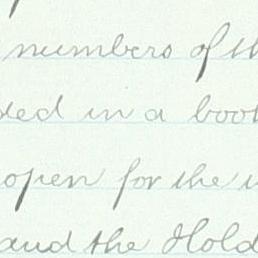 numbers of th
ded in a book
open for the u
and the Hold